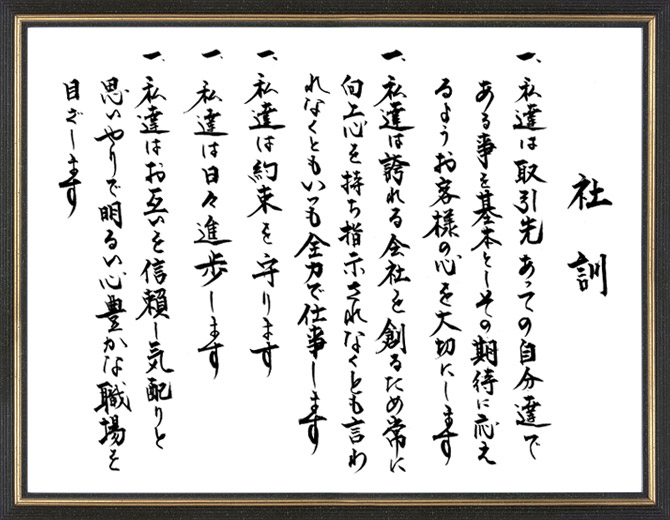 社訓
一、私達は取引先あっての自分達で
ある事を基本としその期待に応え
るようお客様の心を大切にします
一、私達は誇れる会社を創るため常に
向上心を持ち指示されなくとも言わ
れなくともいつも全力で仕事します
一、私達は約束を守ります
一、私達は日々進歩します
一、私達はお互いを信頼し気配りと
思いやりで明るい心豊かな職場を
目ざします